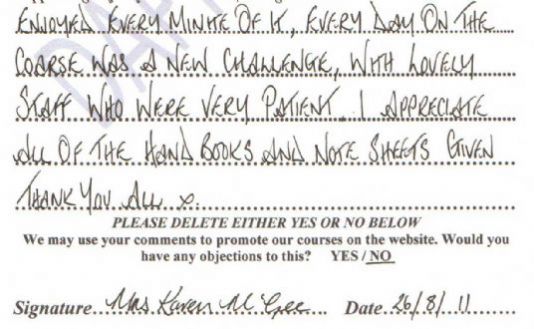 ENJOYED EVERY MINITE OF IT, EVERY DAY ON THE
COARSE WAS A NEW CHALLENGE, WITH LOVELY
STAFF WHO WERE VERY PATIENT. I APPRECIATE
ALL OF THE HAND BOOKS AND NOTE SHEETS GIVEN
THANK YOU ALL x.
PLEASE DELETE EITHER YES OR NO BELOW
We may use your comments to promote our courses on the website. Would you
have any objections to this? YES / NO
Signature Mrs Karen McGee Date 26/8/11